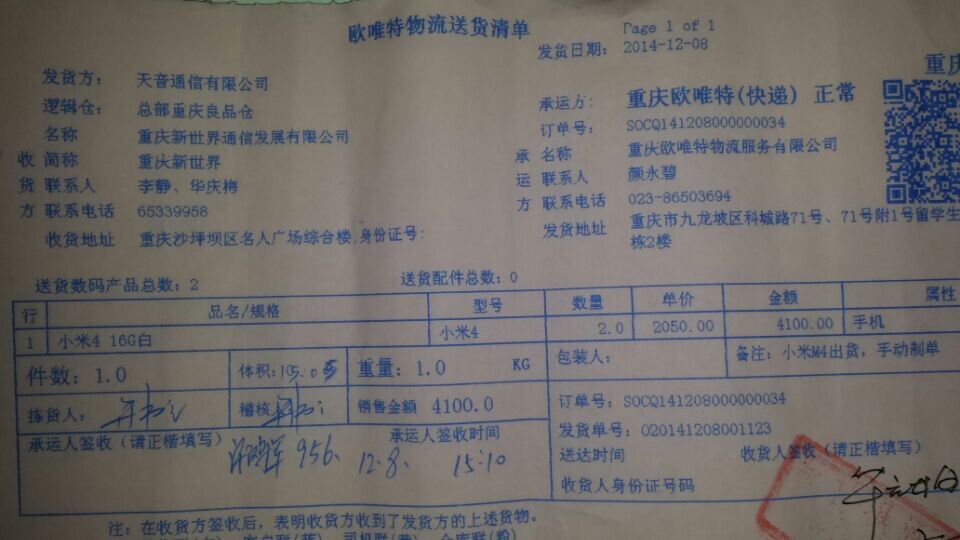 欧唯特物流送货清单
Page 1 of 1
发货日期: 2014-12-08
重庆
发货方: 天音通信有限公司
逻辑仓: 总部重庆良品仓
承运方: 重庆欧唯特(快递) 正常
名称 重庆新世界通信发展有限公司
订单号: SOCQ141208000000034
收 简称 重庆新世界
承 名称 重庆欧唯特物流服务有限公司
货 联系人 李静、华庆梅
运 联系人 颜永碧
方 联系电话 65339958
方 联系电话 023-86503694
收货地址 重庆沙坪坝区名人广场综合楼,身份证号:
发货地址 重庆市九龙坡区科城路71号、71号附1号留学生
栋2楼
送货数码产品总数: 2 送货配件总数: 0
行 品名/规格 型号 数量 单价 金额 属性
1 小米4 16G白 小米4 2.0 2050.00 4100.00 手机
件数: 1.0 体积: 重量: 1.0 KG 包装人: 备注: 小米M4出货, 手动制单
拣货人: 稽核 销售金额 4100.0
订单号: SOCQ141208000000034
承运人签收(请正楷填写) 承运人签收时间
发货单号: 020141208001123
956. 12.8. 15:10
送达时间 收货人签收(请正楷填写)
收货人身份证号码
注: 在收货方签收后, 表明收货方收到了发货方的上述货物。